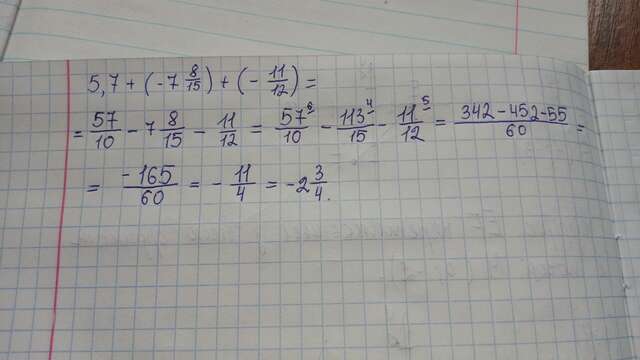 5,7 + (-7 8/15) + (- 11/12) =
= 57/10 - 7 8/15 - 11/12 = 57⁶/10 - 113⁴/15 - 11⁵/12 = 342 - 452 - 55/60 =
= -165/60 = - 11/4 = -2 3/4.